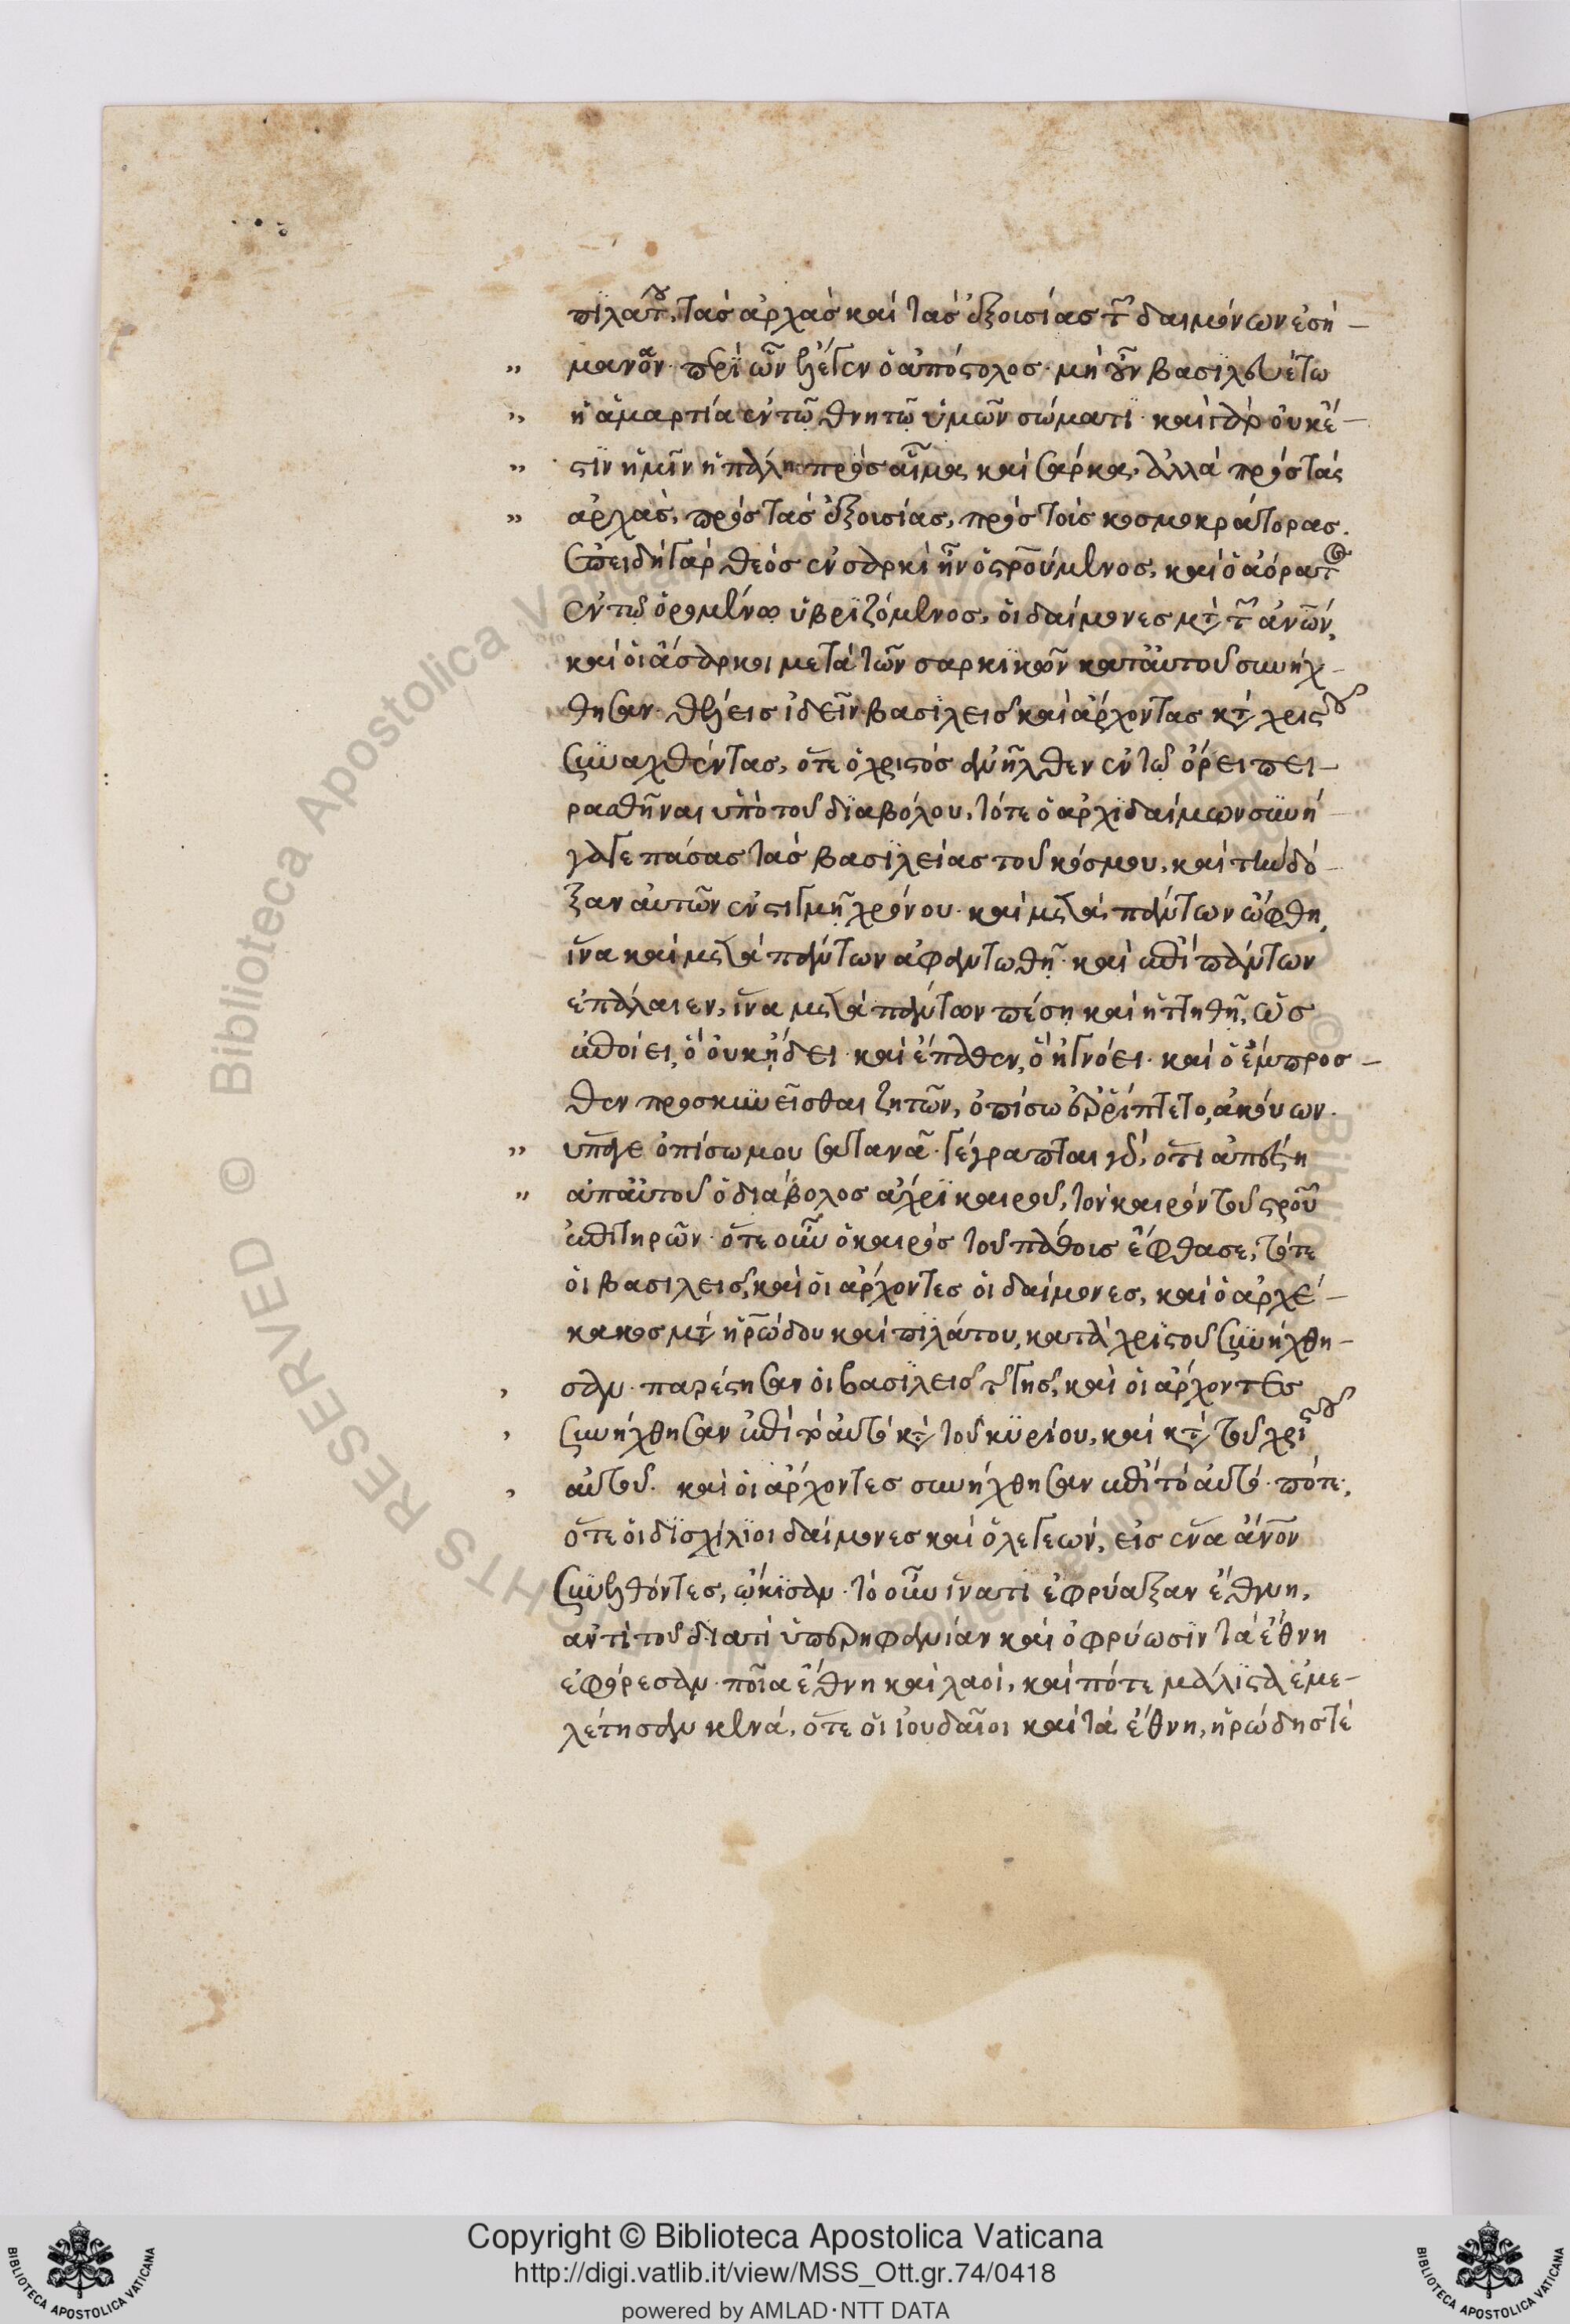 πϊλάτου, τὰς ἀρχὰς καὶ τὰς ἐξουσίας τῶν δαιμόνων ἐσή-
„ μαναν· περὶ ὧν ἔλεγεν ὁ ἀπόστολος· μὴ οὖν βασϊλευέτω
„ ἡ ἁμαρτία ἐν τῶ θνητῶ ὑμῶν σώματι· καὶ γὰρ οὐκ ἔ-
„ στϊν ἡμῖν ἡ πάλη πρὸς αἷμα καὶ σάρκα, ἀλλὰ πρὸς τὰς
„ ἀρχὰς, πρὸς τὰς ἐξουσίας, πρὸς τοὺς κοσμοκράτορας.
ἐπειδὴ γὰρ θεὸς ἐν σαρκὶ ἦν ὁ σρούμενος, καὶ ὁ ἀόρατος
ἐν τῶ ὁρομένω ὑβρϊζόμενος, οἱ δαίμονες μετὰ τῶν ἀνῶν,
καὶ οἱ ἄσαρκοι μετὰ τῶν σαρκϊκῶν κατ' αὐτοῦ συνήχ-
θησαν· θέλεις ἰδεῖν βασϊλεῖς καὶ ἄρχοντας κατὰ χριστοῦ
συναχθέντας, ὅτε ὁ χριστὸς ἀνῆλθεν ἐν τῶ ὄρει πει-
ρασθῆναι ὑπὸ τοῦ διαβόλου, τότε ὁ ἀρχϊδαίμων συνή-
γαγε πάσας τὰς βασϊλείας τοῦ κόσμου, καὶ τὴν δό-
ξαν αὐτῶν ἐν στιγμῆ χρόνου· καὶ μετὰ πάντων ὤφθη,
ἵνα καὶ μετὰ πάντων ἀφαντωθῆ· καὶ ἐπὶ πάντων
ἐπάλαιεν, ἵνα μετὰ πάντων πέση καὶ ἡττηθῆ, ὡς
ἐποίει, ὃ οὐκ ἤδει· καὶ ἔπαθεν, ὃ ἠγνόει· καὶ ὁ ἔμπροσ-
θεν προσκυνεῖσθαι ζητῶν, ὀπίσω ἐρρίπτετο, ἀκούων.
„ ὕπαγε ὀπίσω μου σατανᾶ· γέγραπται γὰρ, ὅτι ἀπέστη
„ ἀπ' αὐτοῦ ὁ διάβολος ἄχρϊ καιροῦ, τὸν καιρὸν τοῦ σροῦ
ἐπιτηρῶν· ὅτε οὖν ὁ καιρὸς τοῦ πάθους ἔφθασε, τότε
οἱ βασιλεῖς, καὶ οἱ ἄρχοντες οἱ δαίμονες, καὶ ὁ ἀρχέ-
κακος μετὰ ἡρώδου καὶ πϊλάτου, κατὰ χριστοῦ συνήχθη-
, σαν· παρέστησαν οἱ βασϊλεῖς τῆς γῆς, καὶ οἱ ἄρχοντες
, συνήχθησαν ἐπὶ τὸ αὐτὸ κατὰ τοῦ κϋρίου, καὶ κατὰ τοῦ χριστοῦ
, αὐτοῦ. καὶ οἱ ἄρχοντες συνήχθησαν ἐπὶ τὸ αὐτό· πότε;
ὅτε οἱ δϊσχίλϊοι δαίμονες καὶ ὁ λεγεὼν, εἰς ἕνα ἄνον
συνελθόντες, ᾤκϊσαν· τὸ οὖν ἵνατί ἐφρύαξαν ἔθνη,
ἀντὶ τοῦ διατί ὑπερηφανίαν καὶ ὀφρύωσϊν τὰ ἔθνη
ἐφόρεσαν· ποῖα ἔθνη καὶ λαοὶ, καὶ πότε μάλϊστα ἐμε-
λέτησαν κενά, ὅτε οἱ ἰουδαῖοι καὶ τὰ ἔθνη, ἡρώδης τέ
Copyright © Biblioteca Apostolica Vaticana
http://digi.vatlib.it/view/MSS_Ott.gr.74/0418
powered by AMLAD·NTT DATA
BIBLIOTECA APOSTOLICA VATICANA
BIBLIOTECA APOSTOLICA VATICANA